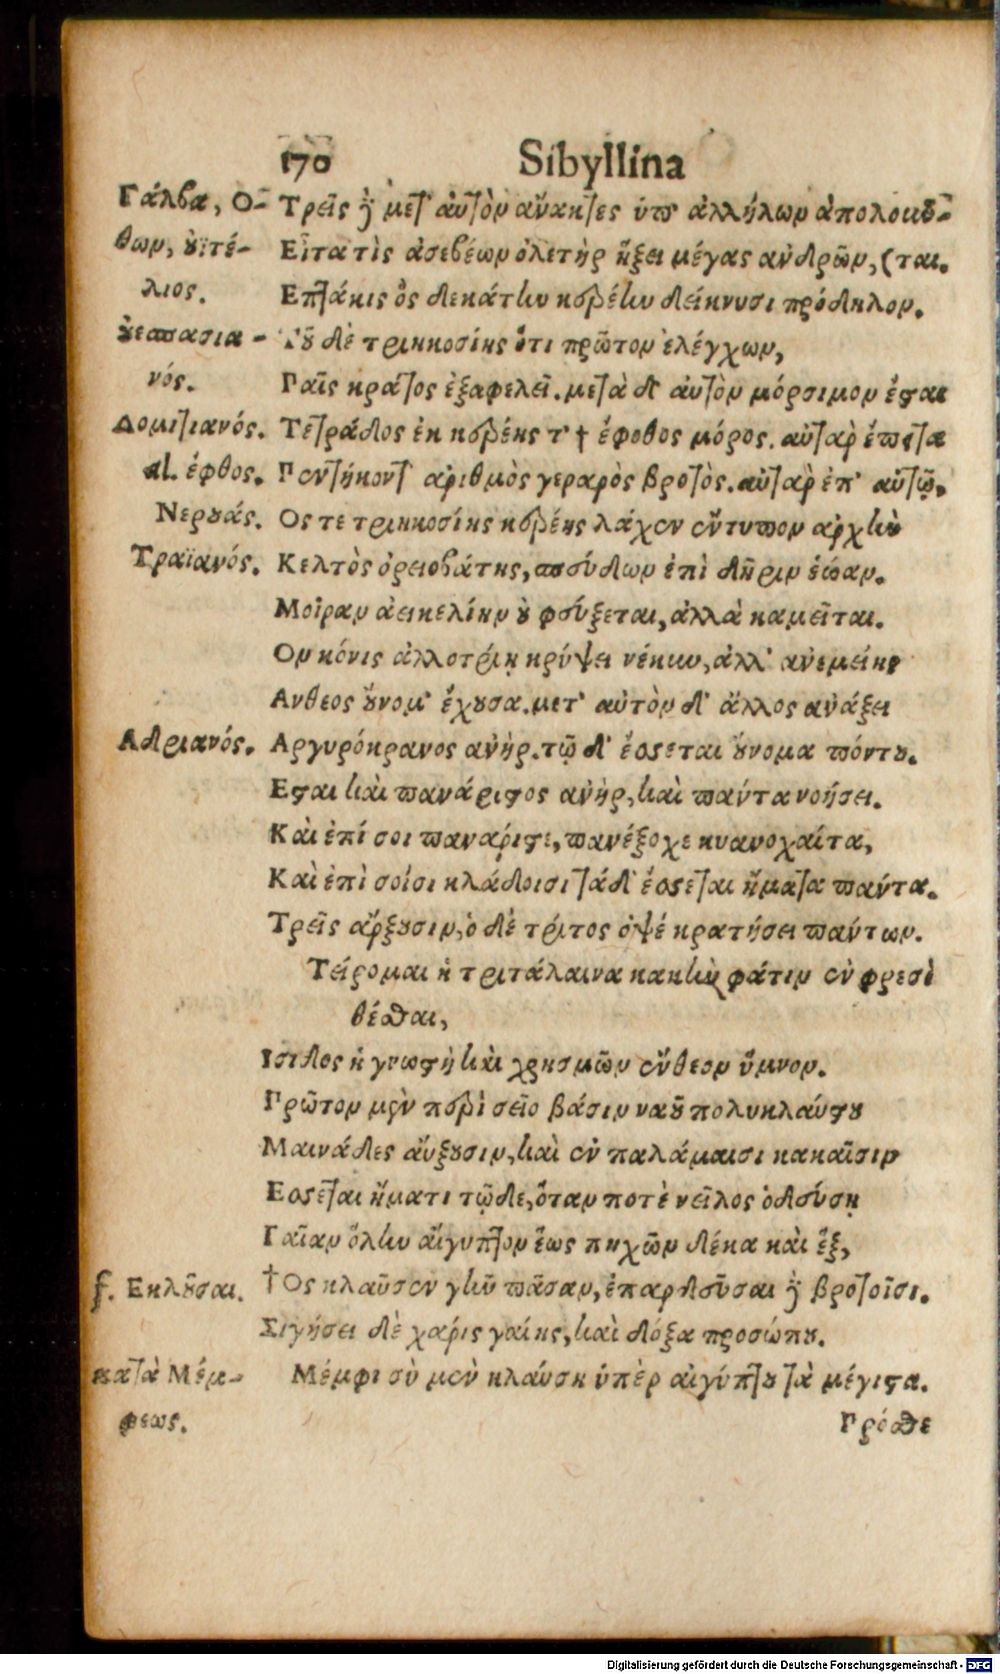 170 Sibyllina
Γάλβα, Ο- Τρεῖς δὲ μετ' αὐτὸν ἄνακτες ὑπ' ἀλλήλων ἀπολοῦν-
θων, ȣ̓ϊτέ- Εἶτά τὶς ἀσεβέων ὀλετὴρ ἥξει μέγας ἀνδρῶν, (ται.
λιος. Επτάκις ὃς δεκάτην κεραίην δείκνυσι πρόδηλον.
ȣ̓εσπασια- Τοῦ δὲ τριηκοσίης ὅτι πρῶτον ἐλέγχων,
νός. Παῖς κράτος ἐξαφελεῖ. μετὰ δ' αὐτὸν μόρσιμον ἔσται
Δομιτιανός. Τέτραδος ἐκ κεραίης τ' † ἔφοθος μόρος. αὐτὰρ ἔπειτα
al. ἑφθος. Πεντήκοντ' ἀριθμὸς γεραρὸς βροτὸς. αὐτὰρ ἐπ' αὐτῷ,
Νερȣάς. Ος τε τριηκοσίης κεραίης λάχεν ἔντυπον ἀρχὴν
Τραϊανός. Κελτὸς ὀρειοβάτης, σπεύδων ἐπὶ δῆριν ἑώαν.
Μοῖραν ἀεικελίην ȣ̓ φεύξεται, ἀλλὰ καμεῖται.
Ον κόνις ἀλλοτρίη κρύψει νέκυν, ἀλλ' ἀνεμείης
Ανθεος ȣ̓́νομ' ἔχȣσα. μετ' αὐτὸν δ' ἄλλος ἀνάξει
Αδριανός. Αργυρόκρανος ἀνὴρ. τῷ δ' ἔσσεται ȣ̓́νομα πόντȣ.
Εσται καὶ πανάριστος ἀνὴρ, καὶ πάντα νοήσει.
Καὶ ἐπί σοι πανάριστε, πανέξοχε κυανοχαίτα,
Καὶ ἐπὶ σοίσι κλάδοισι τάδ' ἔσσεται ἤματα πάντα.
Τρεῖς ἄρξȣσιν, ὁ δὲ τρίτος ὀψέ κρατήσει πάντων.
Τείρομαι ἡ τριτάλαινα κακὴν φάτιν ἐν φρεσὶ
θέσθαι,
Ισιδος ἡ γνωστὴ καὶ χρησμῶν ἔνθεον ὕμνον.
Πρῶτον μὲν περὶ σεῖο βάσιν ναοῦ πολυκλαύστȣ
Μαινάδες ἄυξȣσιν, καὶ ἐν παλάμαισι κακαῖσιν
Εσσεται ἤματι τῷδε, ὅταν ποτὲ νεῖλος ὁδεύση
Γαῖαν ὅλην αἴγυπτον ἕως πηχῶν δέκα καὶ ἓξ,
f. Εκλȣ͂σαι. †Ος κλαῦσεν γῆν πᾶσαν, ἐπαρδεῦσαι δὲ βροτοῖσι.
Σιγήσει δὲ χάρις γαίης, καὶ δόξα προσώπȣ.
κατὰ Μέμ- Μέμφι σὺ μὲν κλαύση ὑπὲρ αἰγύπτȣ τὰ μέγιστα.
φεως. Πρόσθε
Digitalisierung gefördert durch die Deutsche Forschungsgemeinschaft - DFG